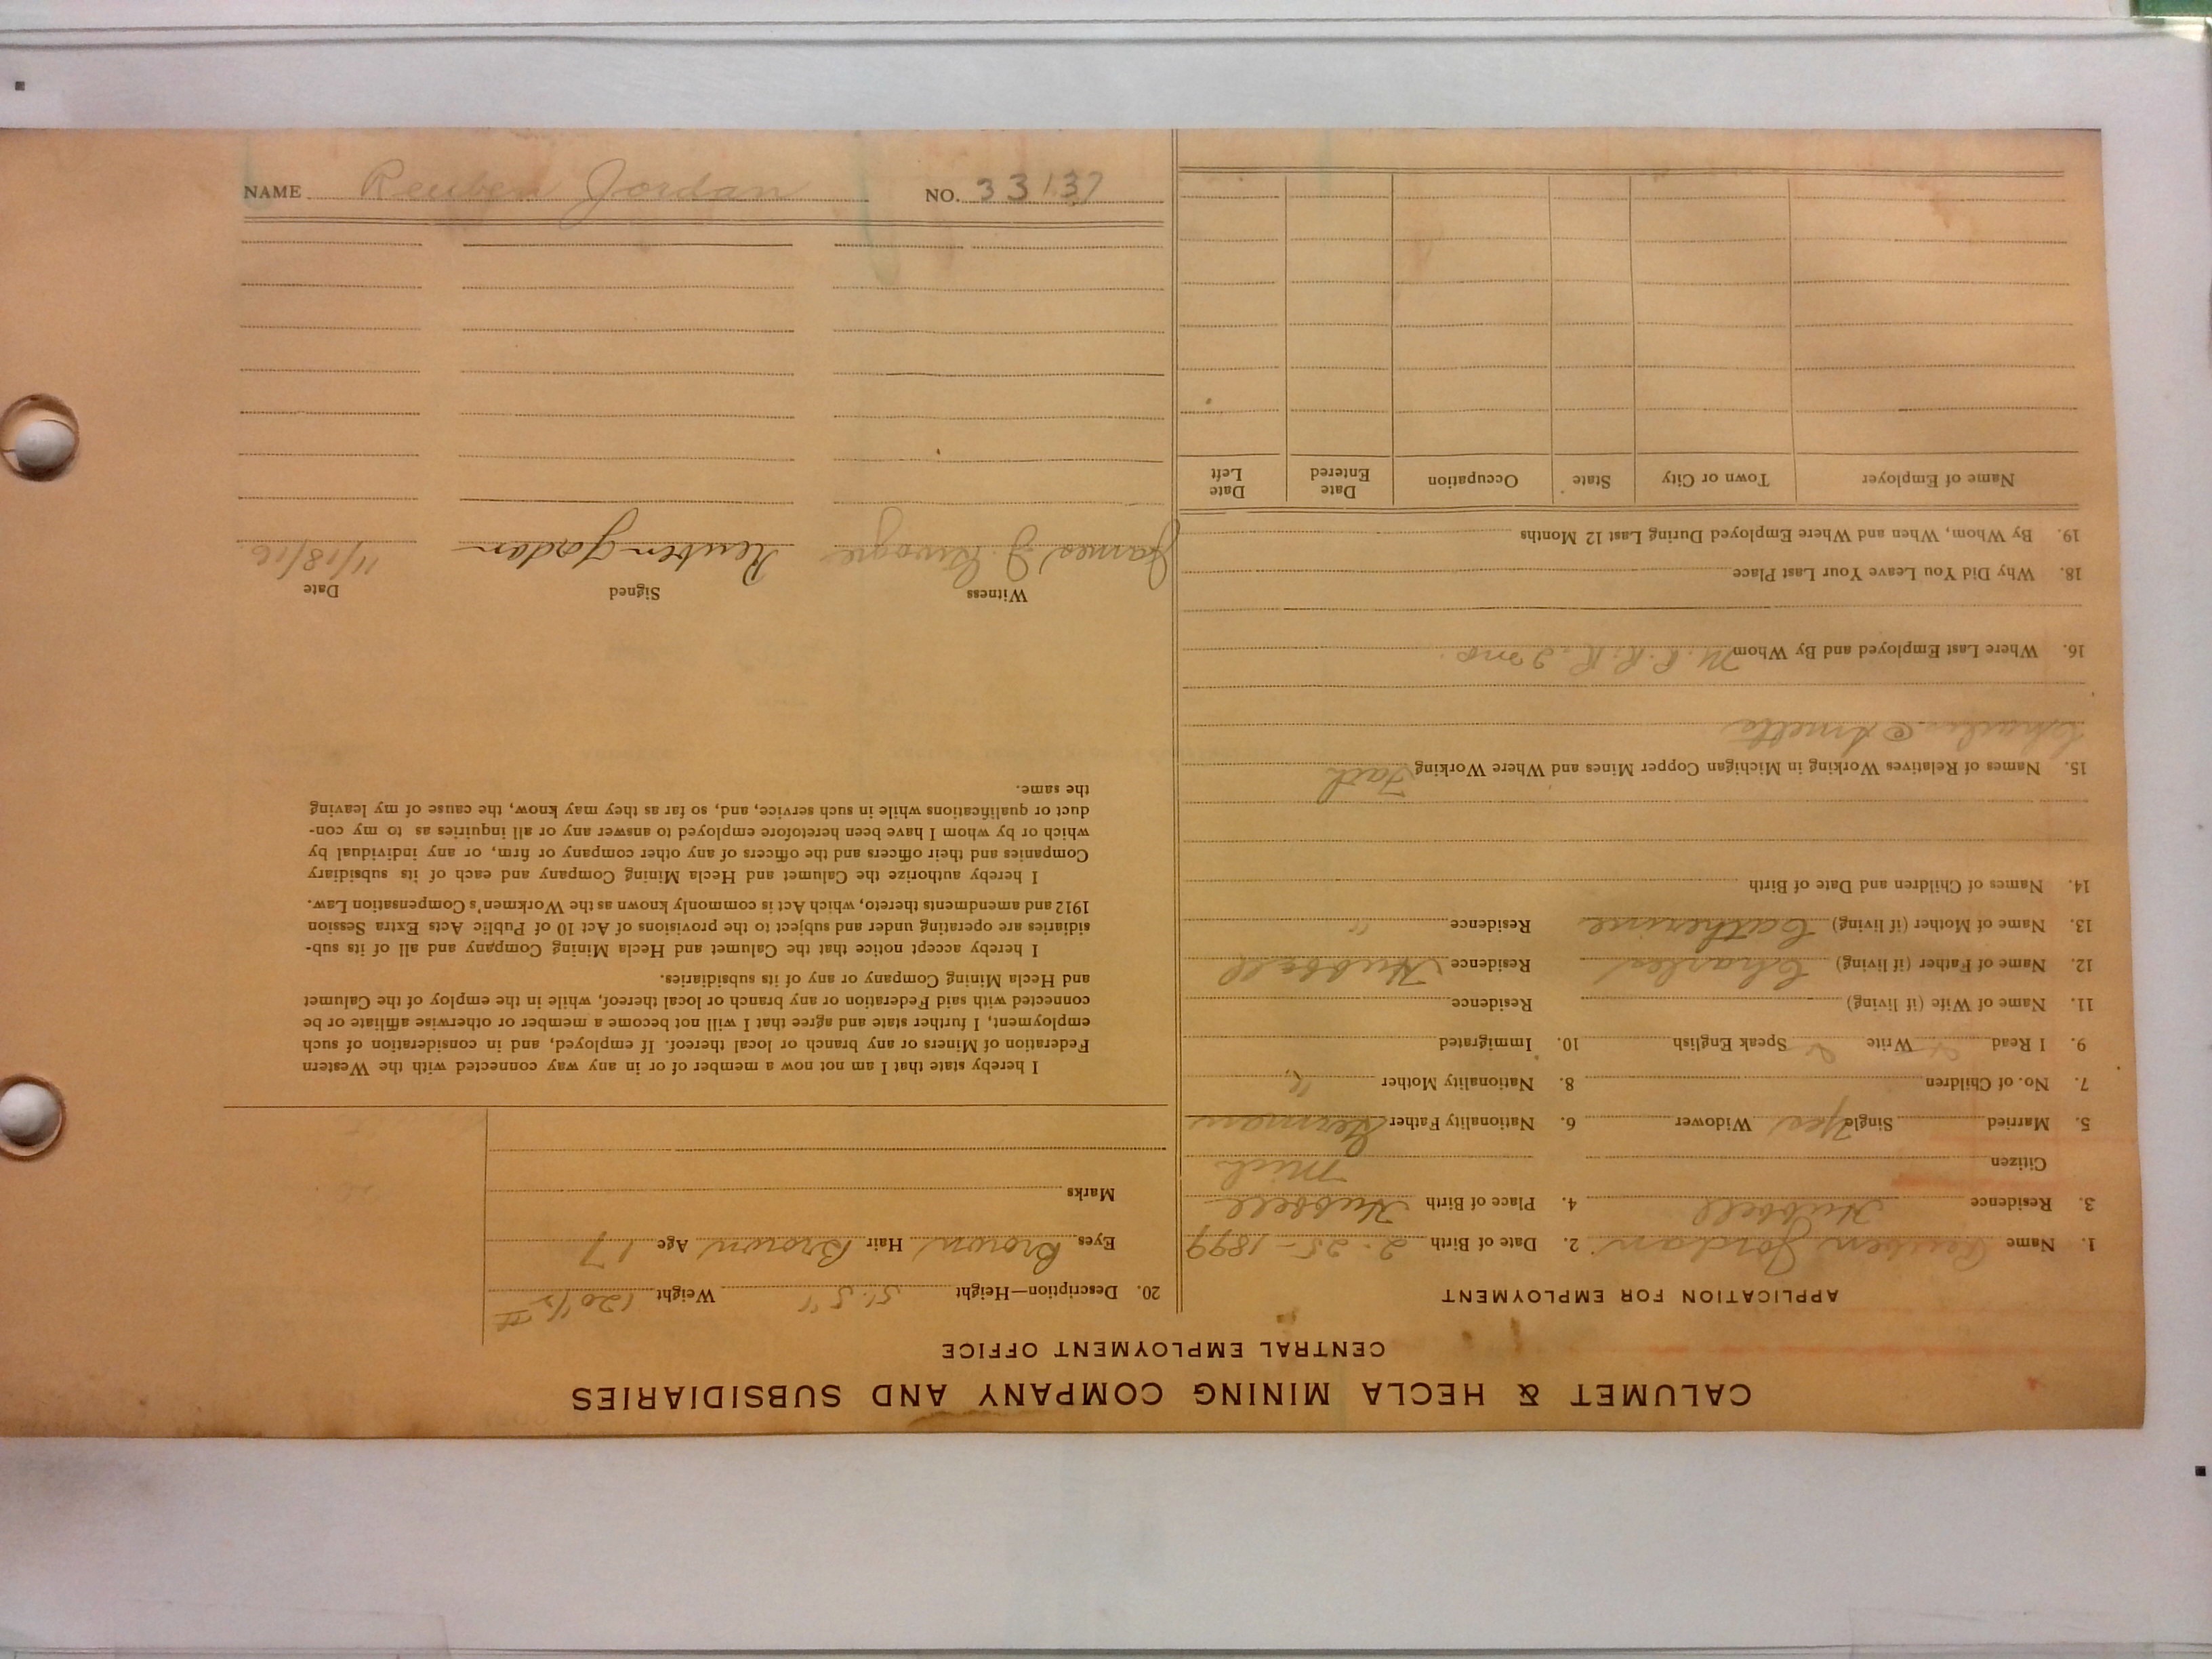 CALUMET & HECLA MINING COMPANY AND SUBSIDIARIES
CENTRAL EMPLOYMENT OFFICE
APPLICATION FOR EMPLOYMENT
1. Name Reuben Jordan 2. Date of Birth 2-25-1899
3. Residence Hubbell 4. Place of Birth Hubbell
Citizen Mich
5. Married Single Yes Widower 6. Nationality Father German
7. No. of Children 8. Nationality Mother "
9. I Read Write Speak English 10. Immigrated
11. Name of Wife (if living) Residence
12. Name of Father (if living) Charles Residence Hubbell
13. Name of Mother (if living) Catherine Residence "
14. Names of Children and Date of Birth
15. Names of Relatives Working in Michigan Copper Mines and Where Working Fath
Charles @ Smelter
16. Where Last Employed and By Whom M. R. R. R. 2 mo.
18. Why Did You Leave Your Last Place
19. By Whom, When and Where Employed During Last 12 Months
Name of Employer Town or City State Occupation Date Entered Date Left
20. Description—Height 5'. 5" Weight 120 1/2 #
Eyes Brown Hair Brown Age 17
Marks
I hereby state that I am not now a member of or in any way connected with the Western
Federation of Miners or any branch or local thereof. If employed, and in consideration of such
employment, I further state and agree that I will not become a member or otherwise affiliate or be
connected with said Federation or any branch or local thereof, while in the employ of the Calumet
and Hecla Mining Company or any of its subsidiaries.
I hereby accept notice that the Calumet and Hecla Mining Company and all of its sub-
sidiaries are operating under and subject to the provisions of Act 10 of Public Acts Extra Session
1912 and amendments thereto, which Act is commonly known as the Workmen's Compensation Law.
I hereby authorize the Calumet and Hecla Mining Company and each of its subsidiary
Companies and their officers and the officers of any other company or firm, or any individual by
which or by whom I have been heretofore employed to answer any or all inquiries as to my con-
duct or qualifications while in such service, and, so far as they may know, the cause of my leaving
the same.
Witness Signed Date
James J. Reuben Jordan 11/18/16
NAME Reuben Jordan NO. 33137